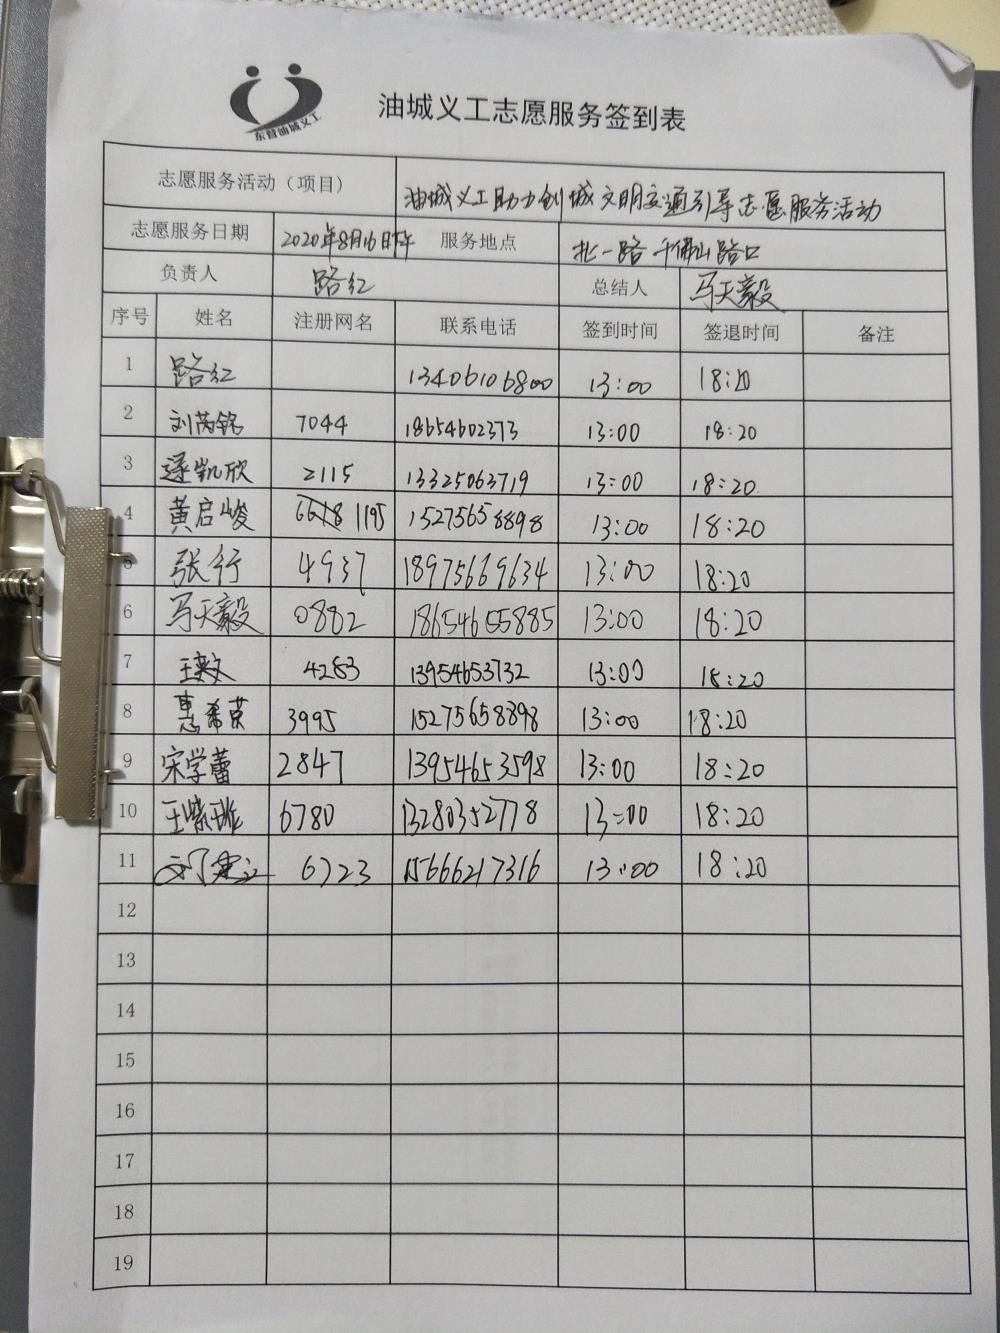 东营油城义工
油城义工志愿服务签到表
志愿服务活动（项目） 油城义工助力创城文明交通引导志愿服务活动
志愿服务日期 2020年8月16日下午 服务地点 北一路千佛山路口
负责人 路红 总结人 马天毅
序号 姓名 注册网名 联系电话 签到时间 签退时间 备注
1 路红 13406106800 13:00 18:20
2 刘芮铭 7044 18654602373 13:00 18:20
3 逯凯欣 2115 13325063719 13:00 18:20
4 黄启峻 1195 15275658898 13:00 18:20
5 张行 4937 18975669634 13:00 18:20
6 马天毅 0882 18654655885 13:00 18:20
7 4283 13954653732 13:00 18:20
8 惠希荣 3995 15275658898 13:00 18:20
9 宋学蕾 2847 13954653598 13:00 18:20
10 6780 13280352778 13:00 18:20
11 6723 15666217316 13:00 18:20
12
13
14
15
16
17
18
19